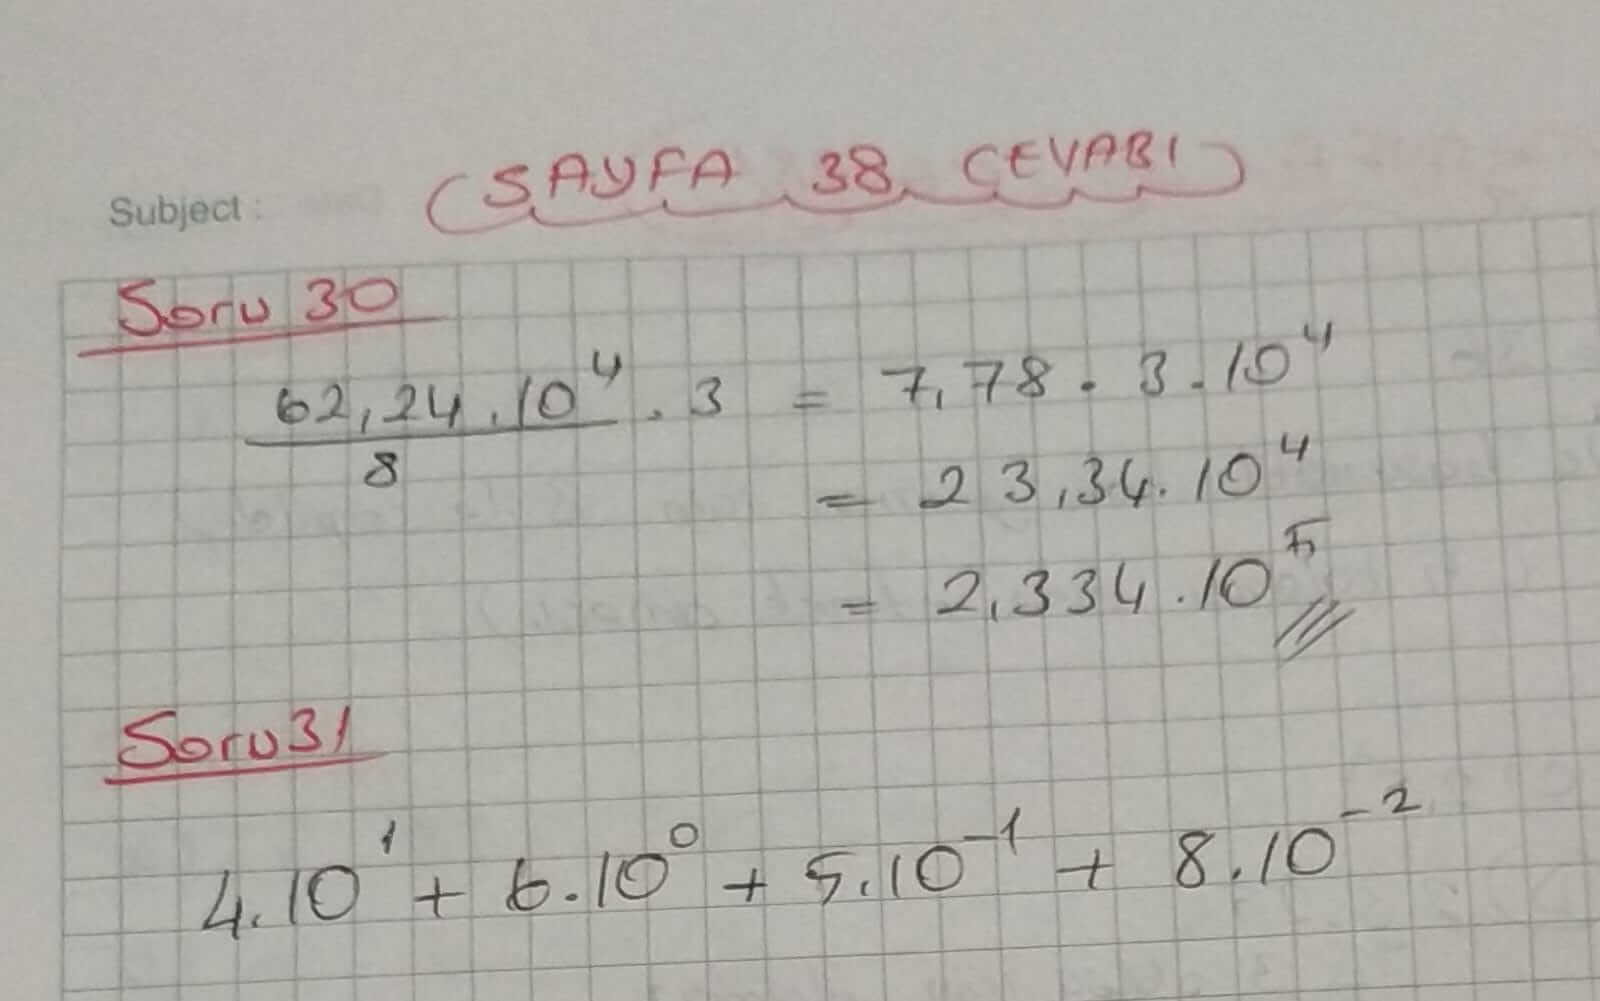 (SAYFA 38 CEVABI)
Subject:
Soru 30
62,24.10⁴/8 . 3 = 7,78 . 3 . 10⁴
= 23,34.10⁴
= 2,334.10⁵
Soru 31
4.10¹ + 6.10⁰ + 5.10⁻¹ + 8.10⁻²